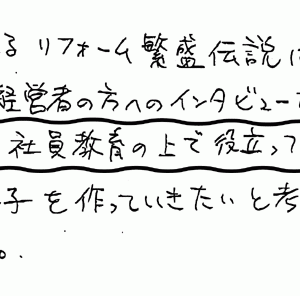 る リフォーム繁盛伝説
経営者の方へのインタビュー
社員教育の上で役立って
子を作っていきたいと考
。